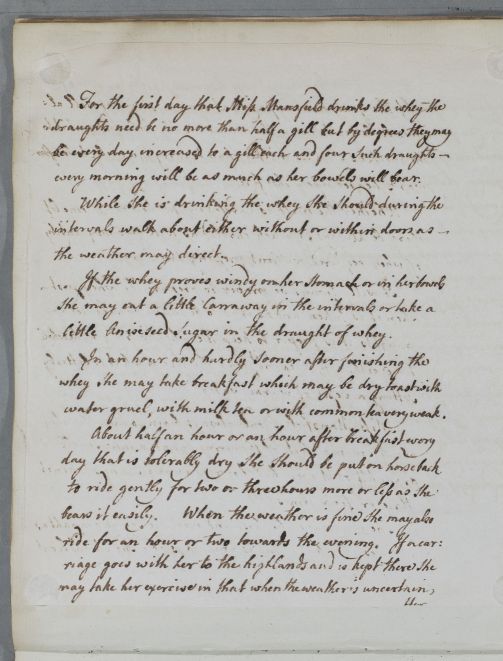 For the first day that Miss Mansfield drinks the whey the
draughts need be no more than half a gill but by degrees they may
be every day increased to a gill each and four such draughts –
every morning will be as much as her bowels will bear.
While she is drinking the whey she should during the
intervals walk about either without or within doors as –
the weather may direct.
If the whey proves windy on her stomach or in her bowels
she may eat a little Carraway in the intervals or take a
little Aniseed Sugar in the draught of whey.
In an hour and hardly sooner after finishing the
whey she may take breakfast which may be dry toast with
water gruel, with milk tea or with common tea very weak.
About half an hour or an hour after breakfast every
day that is tolerably dry she should be put on horseback
to ride gently for two or three hours more or less as she
bears it easily. When the weather is fine she may also
ride for an hour or two towards the evening. If a car:
riage goes with her to the highlands and is kept there she
may take her exercise in that when the weather's uncertain,